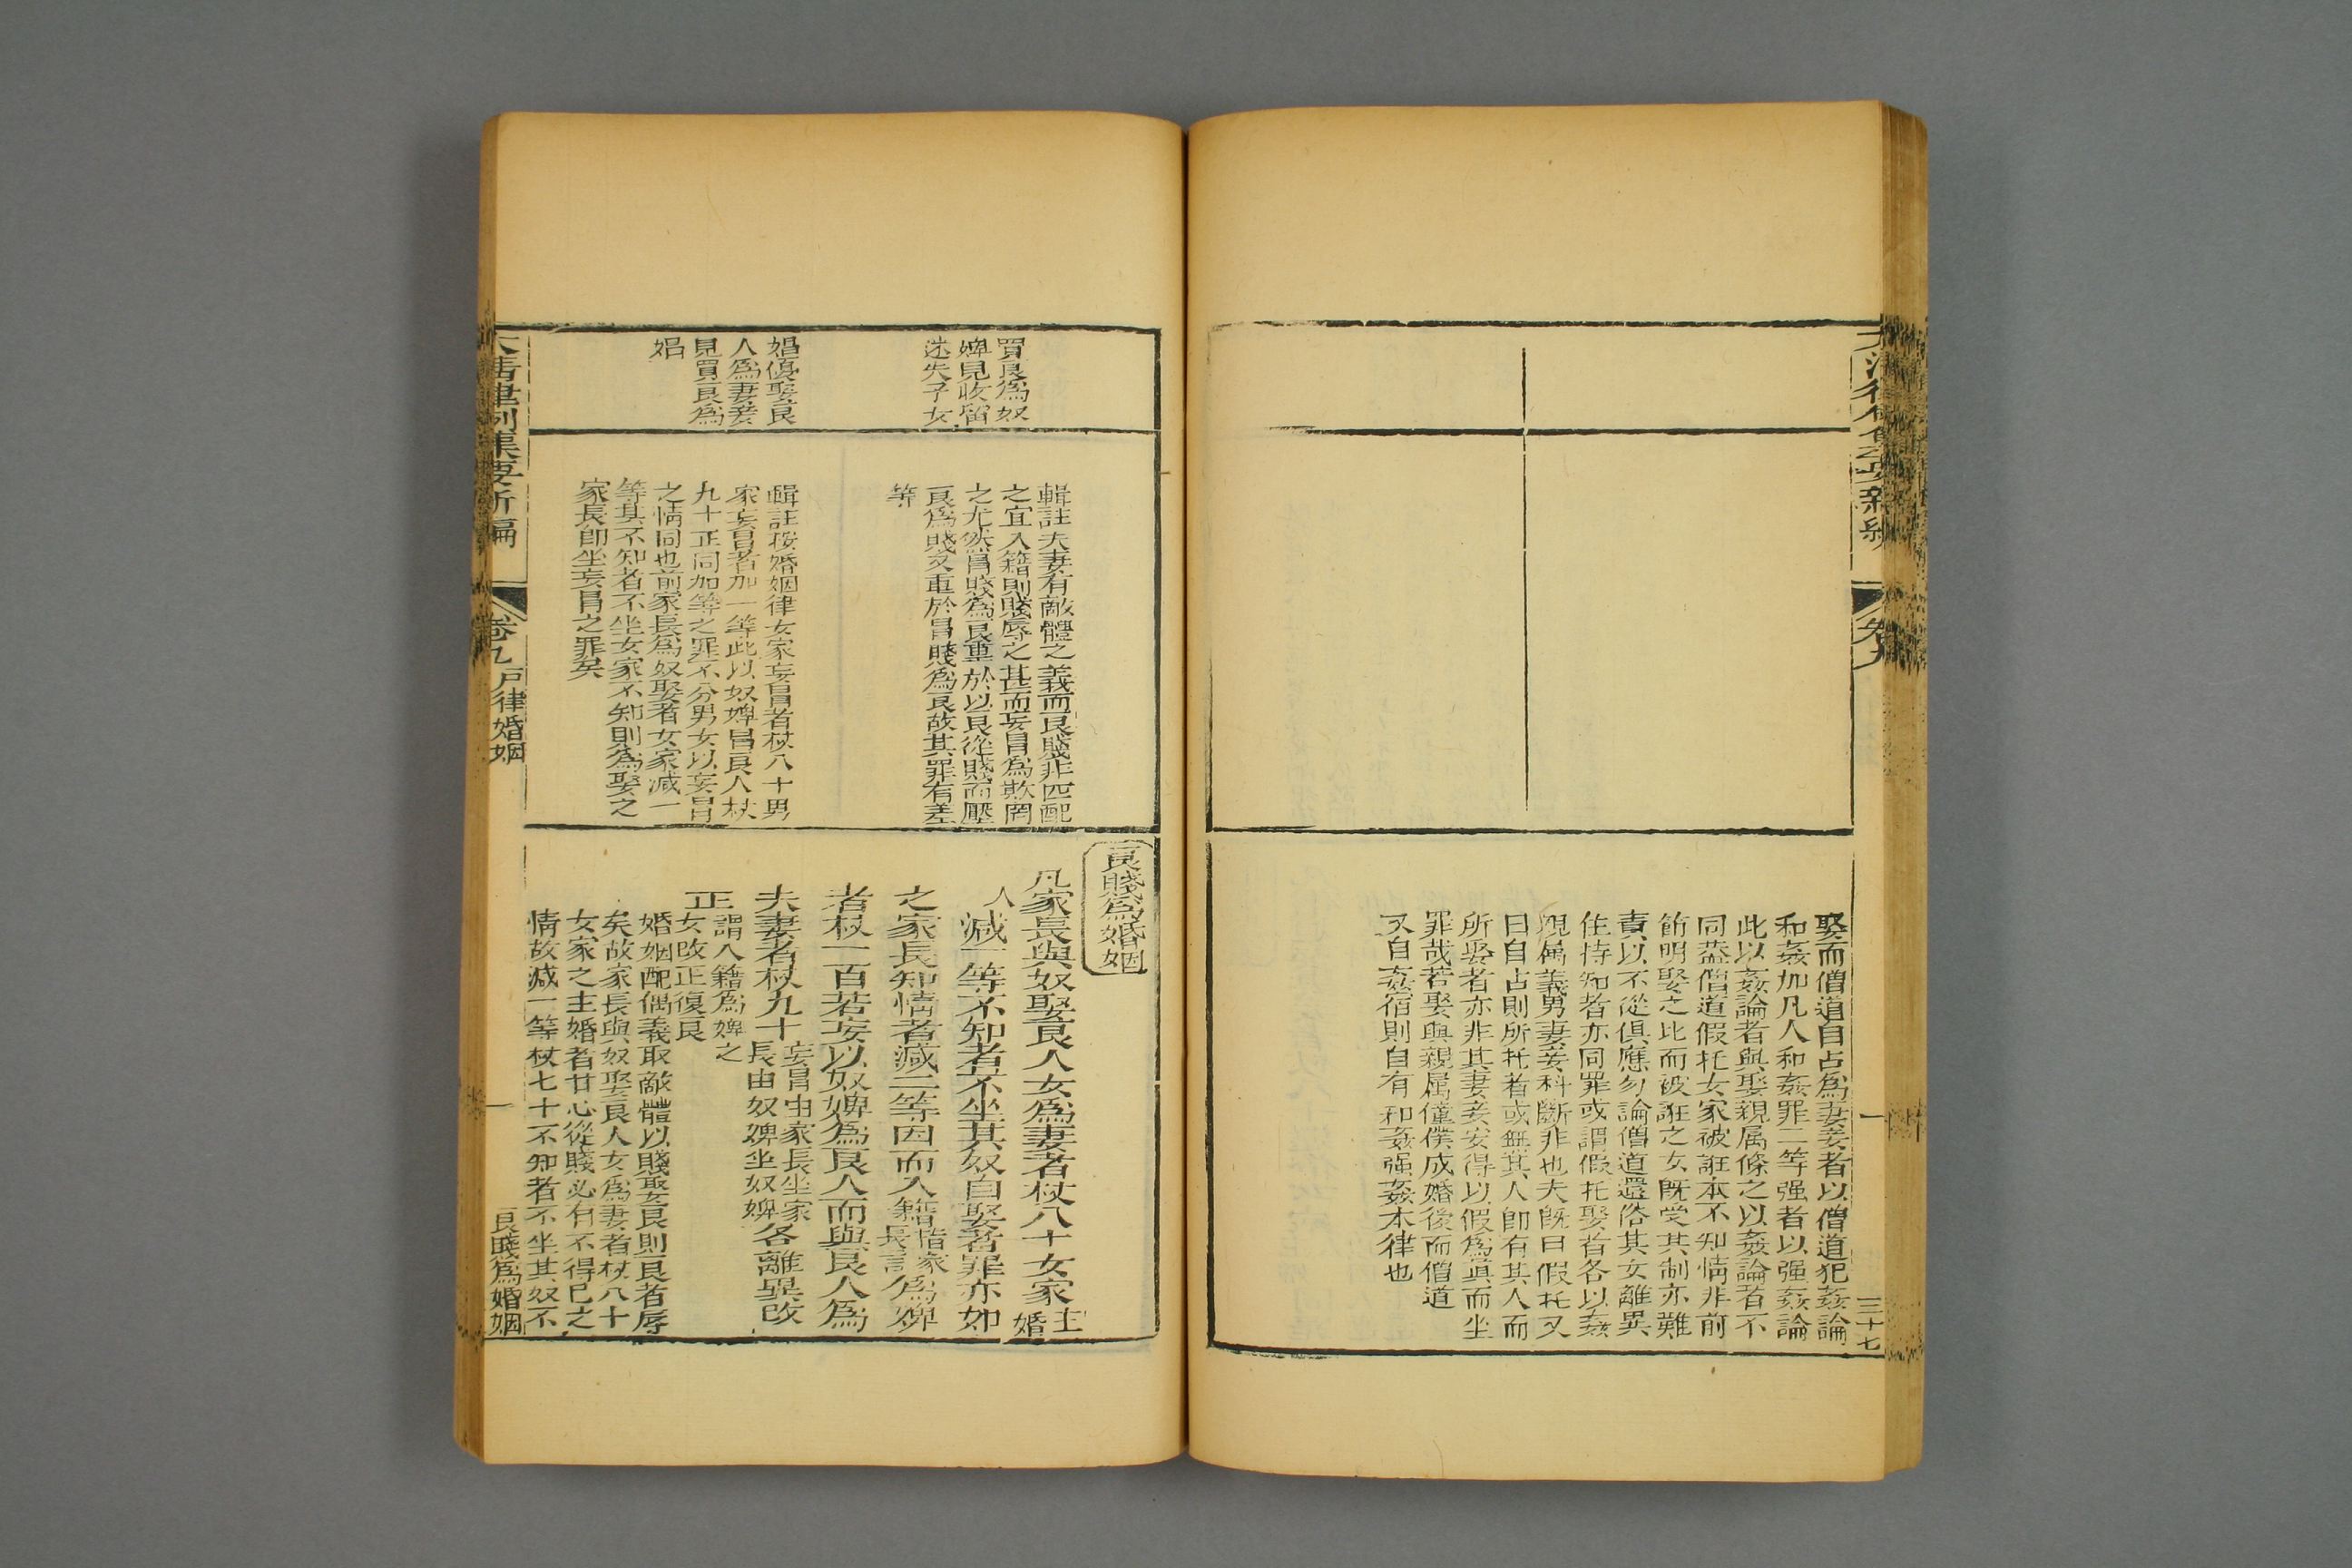 娶而僧道自占爲妻妾者以僧道犯姦論
和姦加凡人和姦罪二等强者以强姦論
此以姦論者與娶親属條之以姦論者不
同葢僧道假托女家被誑本不知情非前
節明娶之比而被誑之女既受其制亦難
責以不從俱應勿論僧道還俗其女離異
住持知者亦同罪或謂假托娶者各以姦
親属義男妻妾科斷非也夫既曰假托又
曰自占則所托者或無其人卽有其人而
所娶者亦非其妻妾安得以假爲眞而坐
罪哉若娶與親属僮僕成婚後而僧道
又自姦宿則自有和姦强姦本律也
三十七
買良爲奴
婢見收留
迷失子女
娼優娶良
人爲妻妾
見買良爲
娼
輯註夫妻有敵體之義而良賤非匹配
之宜入籍則賤辱之甚而妄冒爲欺罔
之尤然冒賤爲良重於以良從賤而壓
良爲賤又重於冒賤爲良故其罪有差
等
輯註按婚姻律女家妄冒者杖八十男
家妄冒者加一等此以奴婢冒良人杖
九十正同加等之罪不分男女以妄冒
之情同也前家長爲奴娶者女家減一
等其不知者不坐女家不知則爲娶之
家長卽坐妄冒之罪矣
良賤爲婚姻
凡家長與奴娶良人女爲妻者杖八十女家主婚
人減一等不知者不坐其奴自娶者罪亦如
之家長知情者減二等因而入籍指家長言爲婢
者杖一百若妄以奴婢爲良人而與良人爲
夫妻者杖九十妄冒由家長坐家長由奴婢坐奴婢各離異改
正謂入籍爲婢之女改正復良
婚姻配偶義取敵體以賤娶良則良者辱
矣故家長與奴娶良人女爲妻者杖八十
女家之主婚者甘心從賤必有不得已之
情故減一等杖七十不知者不坐其奴不
大清律例集要新編
卷九
戸律婚姻
良賤爲婚姻